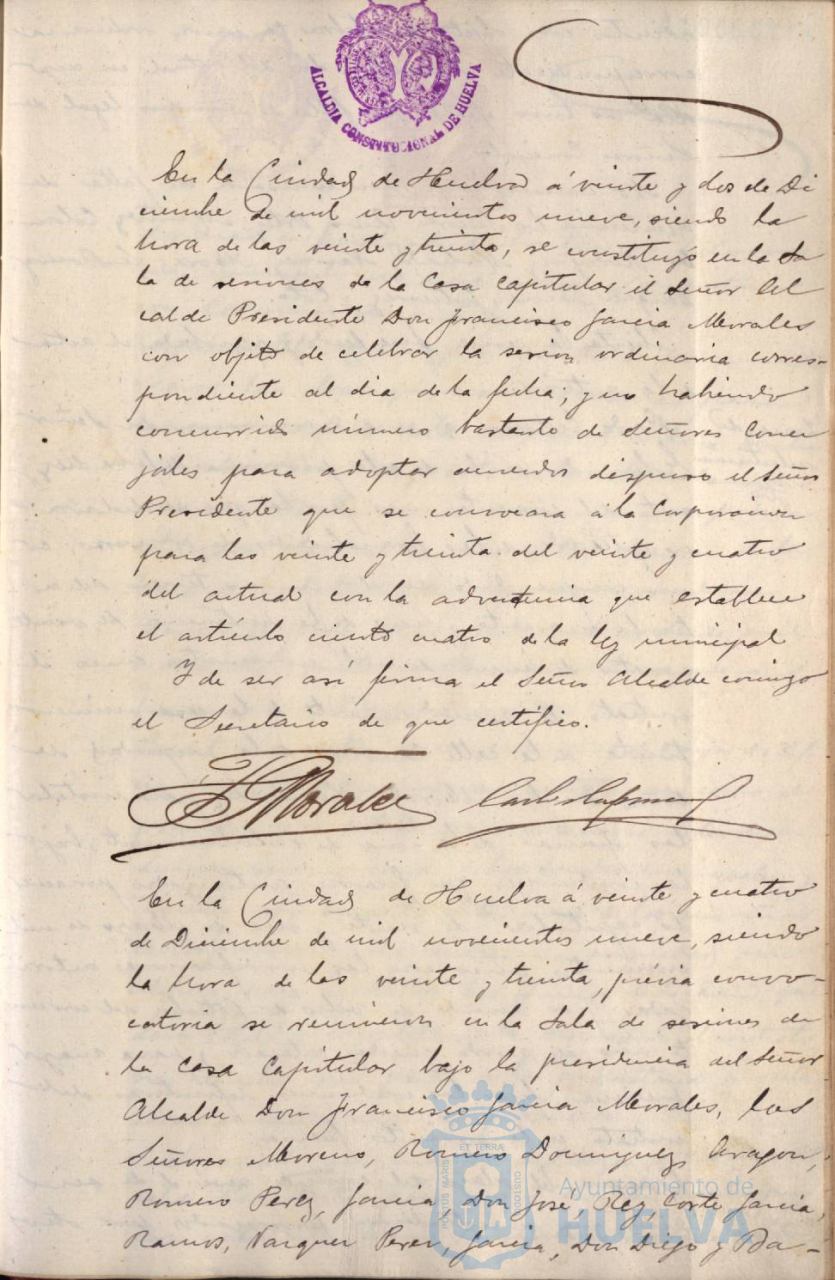 ALCALDIA CONSTITUCIONAL DE HUELVA
En la Ciudad de Huelva á veinte y dos de Di
ciembre de mil novecientos nueve, siendo la
hora de las veinte y treinta, se constituyó en la Sa
la de sesiones de la Casa Capitular el Señor Al
calde Presidente Don Francisco Garcia Morales
con objeto de celebrar la sesion ordinaria corres-
pondiente al dia de la fecha; y no habiendo
concurrido número bastante de Señores Conce
jales para adoptar acuerdos dispuso el Señor
Presidente que se convocara á la Corporacion
para las veinte y treinta del veinte y cuatro
del actual con la advertencia que establece
el artículo ciento cuatro de la ley municipal
Y de ser así firma el Señor Alcalde conmigo
el Secretario de que certifico.
F G Morales
En la Ciudad de Huelva á veinte y cuatro
de Diciembre de mil novecientos nueve, siendo
la hora de las veinte y treinta, prévia convo-
catoria se reunieron en la Sala de sesiones de
la Casa Capitular bajo la presidencia del Señor
Alcalde Don Francisco Garcia Morales, los
Señores Moreno, Romero Dominguez, Aragon,
Romero Perez, Garcia, Don José, Rey, Corte Garcia,
Ramos, Vazquez Perez, Garcia, Don Diego y Ba-
PORTUS MARIS ET TERRAE CUSTODIA
Ayuntamiento de
HUELVA